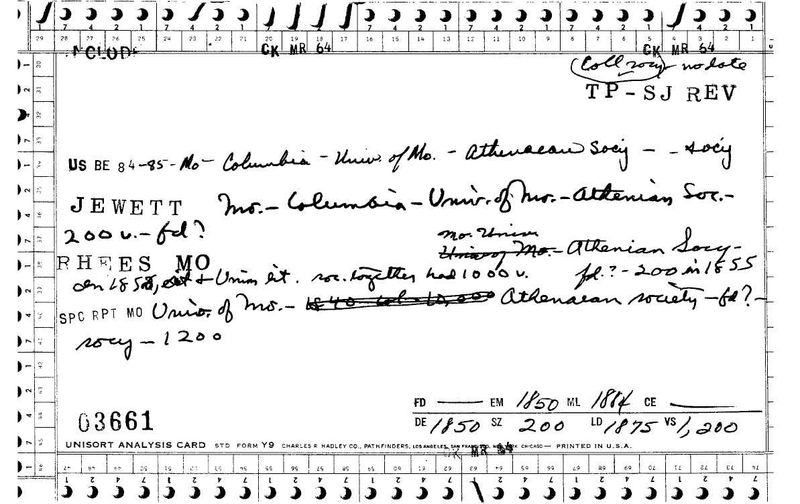 INCLODE CK MR 64 CK MR 64
Coll socy - no date
TP-SJ REV
US BE 84-85-Mo- Columbia - Univ. of Mo. - Athenaean Socy - - socy
JEWETT Mo.- Columbia - Univ. of Mo. - Athenian Soc.-
200 v. - fd?
Mo. Univ.
RHEES MO Univ of Mo. - Athenian Socy-
fd.? - 200 in 1855
& Union Lit. soc. together had 1000 v.
SPC RPT MO Univ. of Mo. - 1840 col - 10,000 Athenaean society - fd? -
socy - 1200
FD EM 1850 ML 1884 CE
03661
DE 1850 SZ 200 LD 1875 VS 1,200
UNISORT ANALYSIS CARD STD FORM Y9 CHARLES R. HADLEY CO., PATHFINDERS, LOS ANGELES, SAN FRANCISCO, NEW YORK, CHICAGO — PRINTED IN U.S.A.